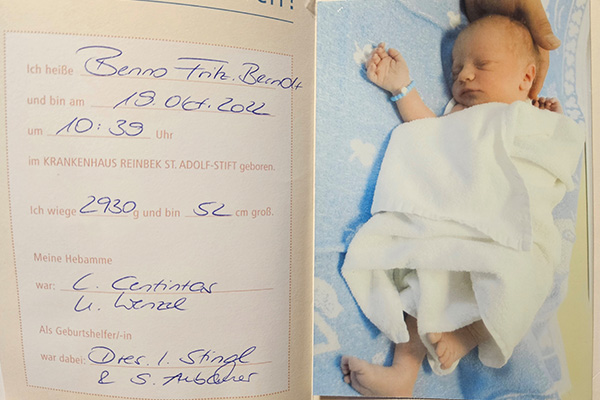 Ich heiße Benno Fritz Berndt
und bin am 19. Okt. 2022
um 10:39 Uhr
im KRANKENHAUS REINBEK ST. ADOLF-STIFT geboren.
Ich wiege 2930 g und bin 52 cm groß.
Meine Hebamme
war: C. Centintas
U. Wenzel
Als Geburtshelfer/-in
war dabei: Dres. I. Stingl
& S.